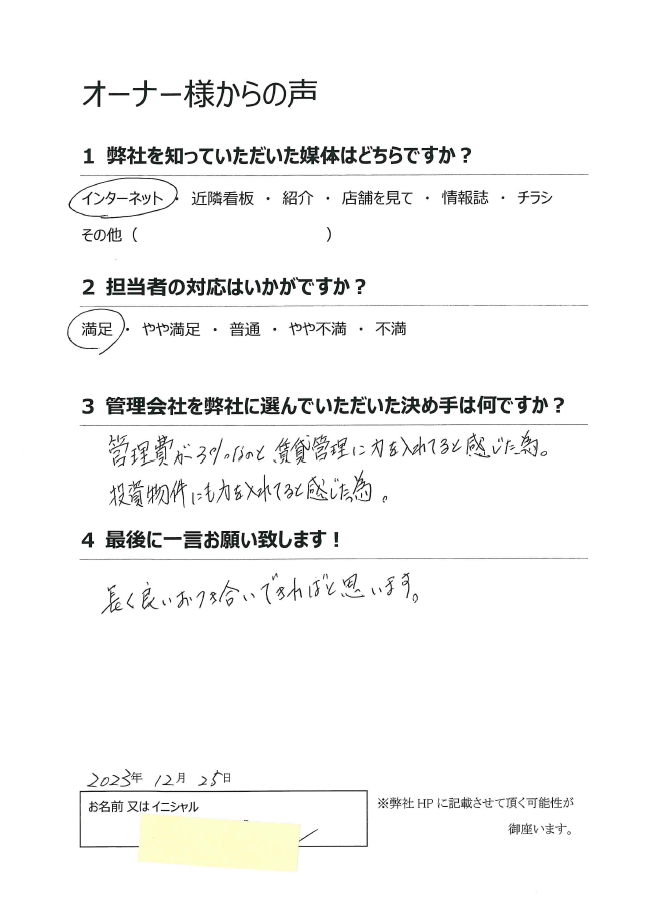 オーナー様からの声
1 弊社を知っていただいた媒体はどちらですか？
インターネット ・ 近隣看板 ・ 紹介 ・ 店舗を見て ・ 情報誌 ・ チラシ
その他（ ）
2 担当者の対応はいかがですか？
満足 ・ やや満足 ・ 普通 ・ やや不満 ・ 不満
3 管理会社を弊社に選んでいただいた決め手は何ですか？
管理費が3%なのと賃貸管理に力を入れてると感じた為。
投資物件にも力を入れてると感じた為。
4 最後に一言お願い致します！
長く良いおつき合いできればと思います。
2023年 12月 25日
お名前 又は イニシャル
※弊社 HP に記載させて頂く可能性が
御座います。